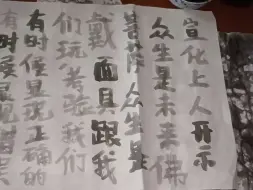 宣化上人开示
众生是未来佛
菩萨众生是
戴面具跟我
们玩考验我们
有时候显现正确的
有时候显现错误